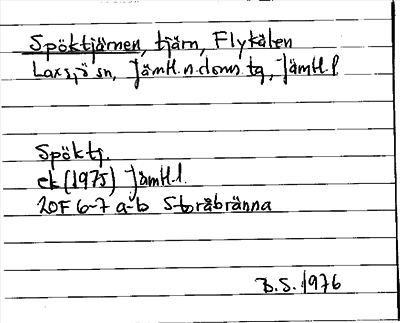 Spöktjärnen, tjärn, Flykälen
Laxsjö sn, Jämtl. n. doms. tg, Jämtl. l
Spöktj.
ek (1975) Jämtl. l.
20F 6-7 a-b Storåbränna
B.S. 1976